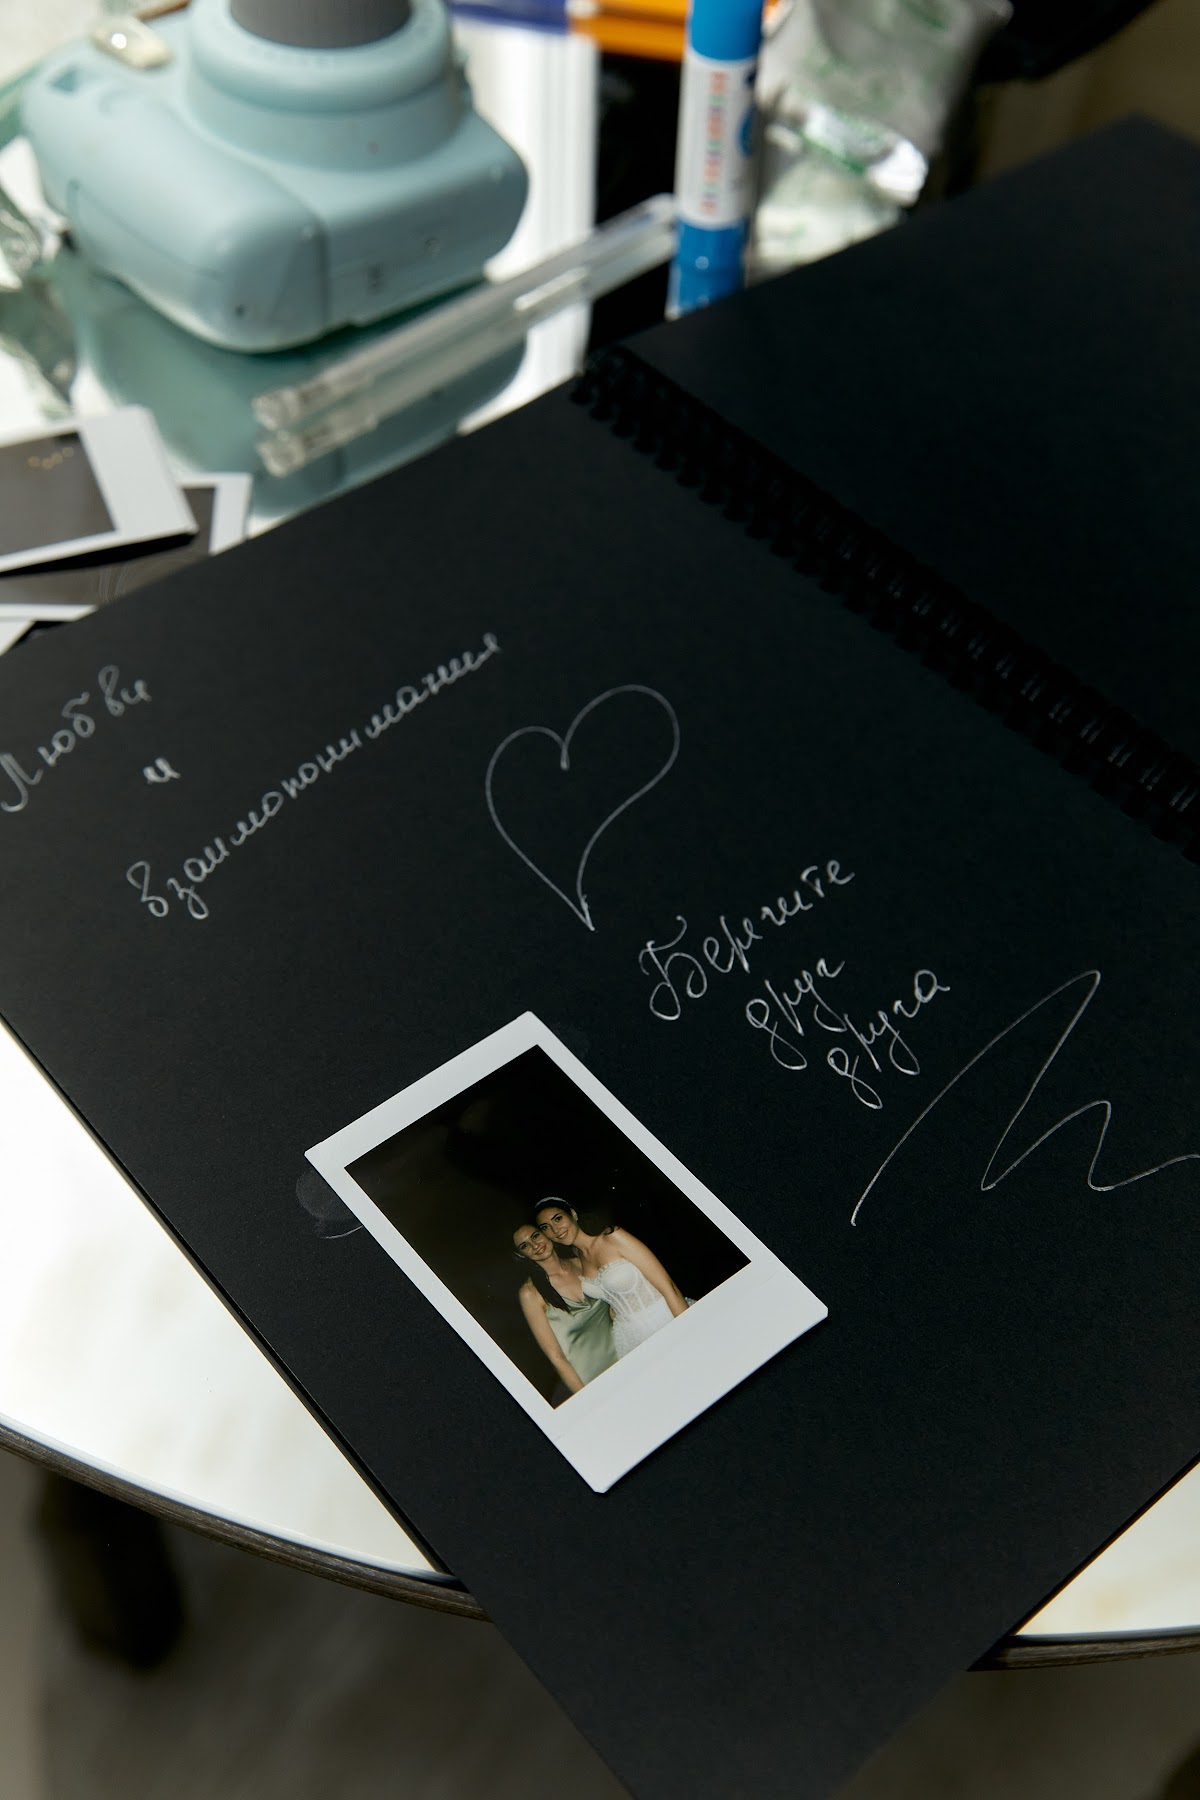 Любви
и
взаимопонимания
Берегите
друг
друга